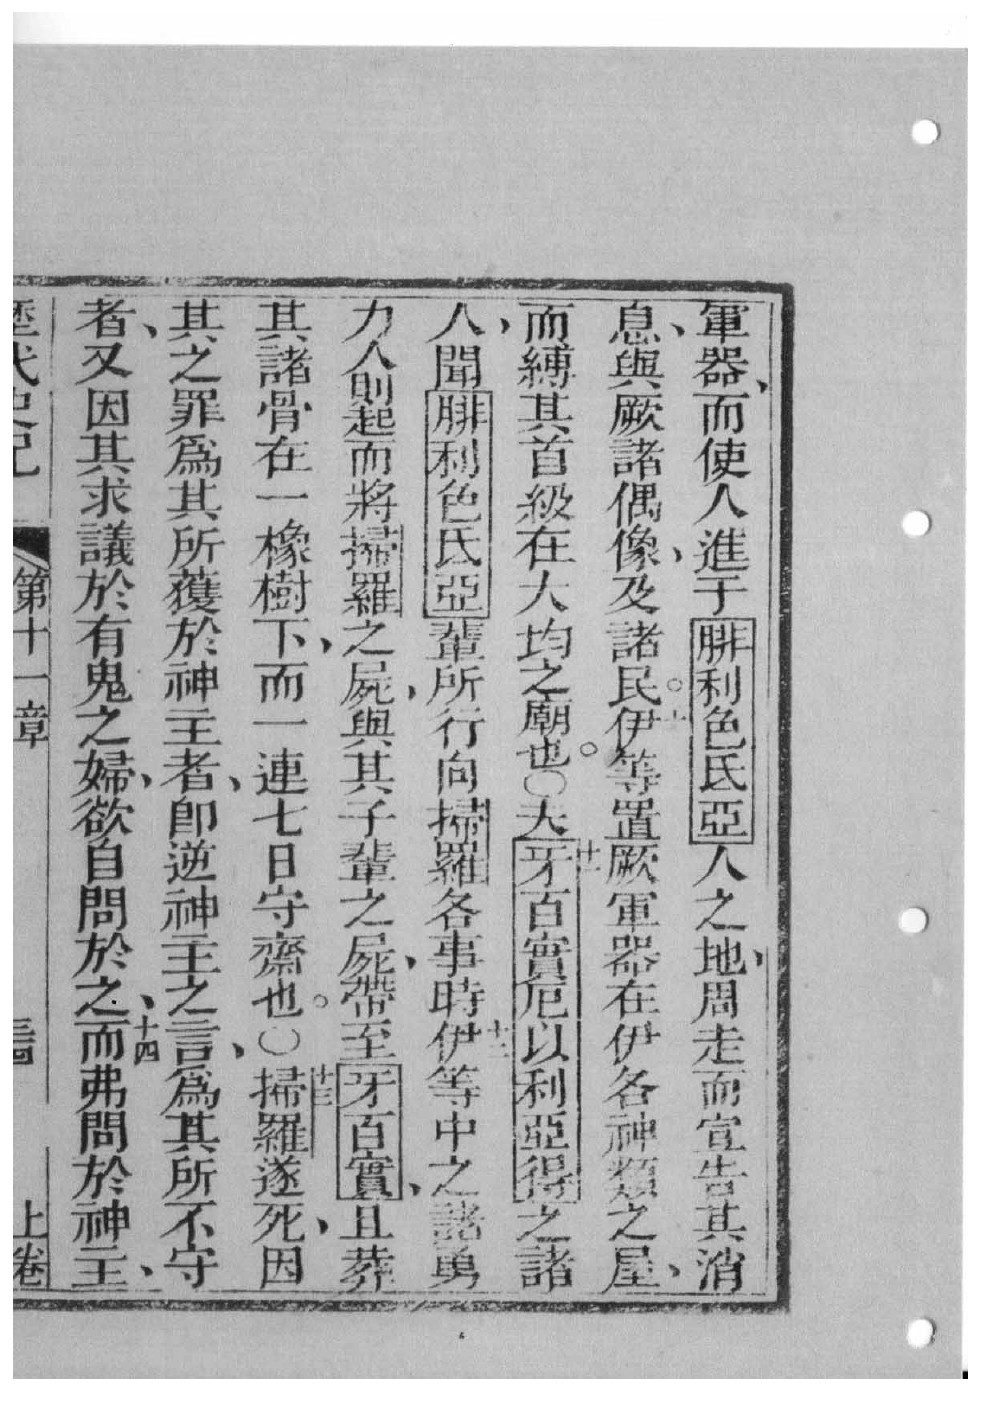 軍器、而使人進于腓利色氏亞人之地、周走而宣告其消
息、與厥諸偶像、及諸民。十伊等置厥軍器在伊各神類之屋、
而縛其首級在大均之廟也。○十一夫牙百實厄以利亞得之諸
人、聞腓利色氏亞輩所行向掃羅各事時、十二伊等中之諸勇
力人則起而將掃羅之屍、與其子輩之屍、帶至牙百實、且葬
其諸骨在一橡樹下、而一連七日守齋也。○十三掃羅遂死、因
其之罪爲其所獲於神主者、卽逆神主之言、爲其所不守
者、又因其求議於有鬼之婦、欲自問於之、十四而弗問於神主、
歷代史記 第十一章 上卷